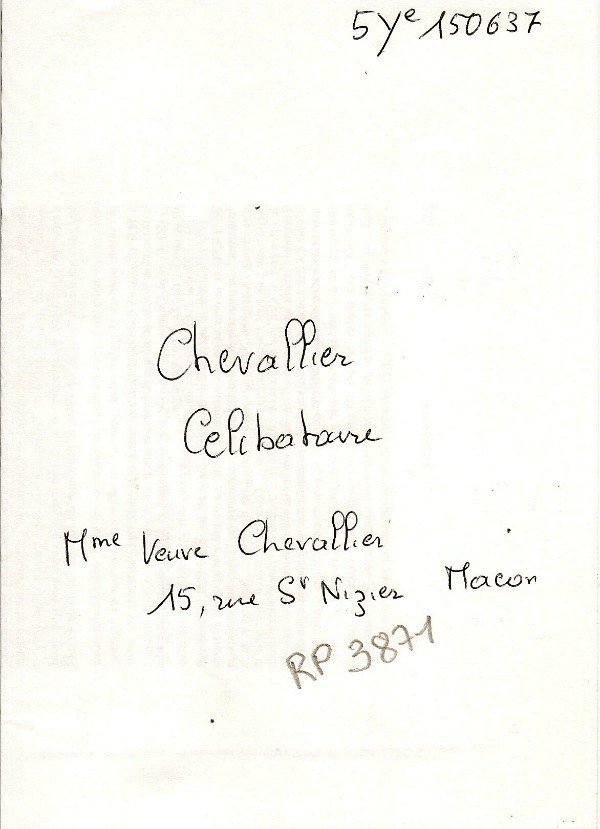 5Ye 150637
Chevallier
Celibataire
Mme Veuve Chevallier
15, rue St Nizier Macon
RP 3871